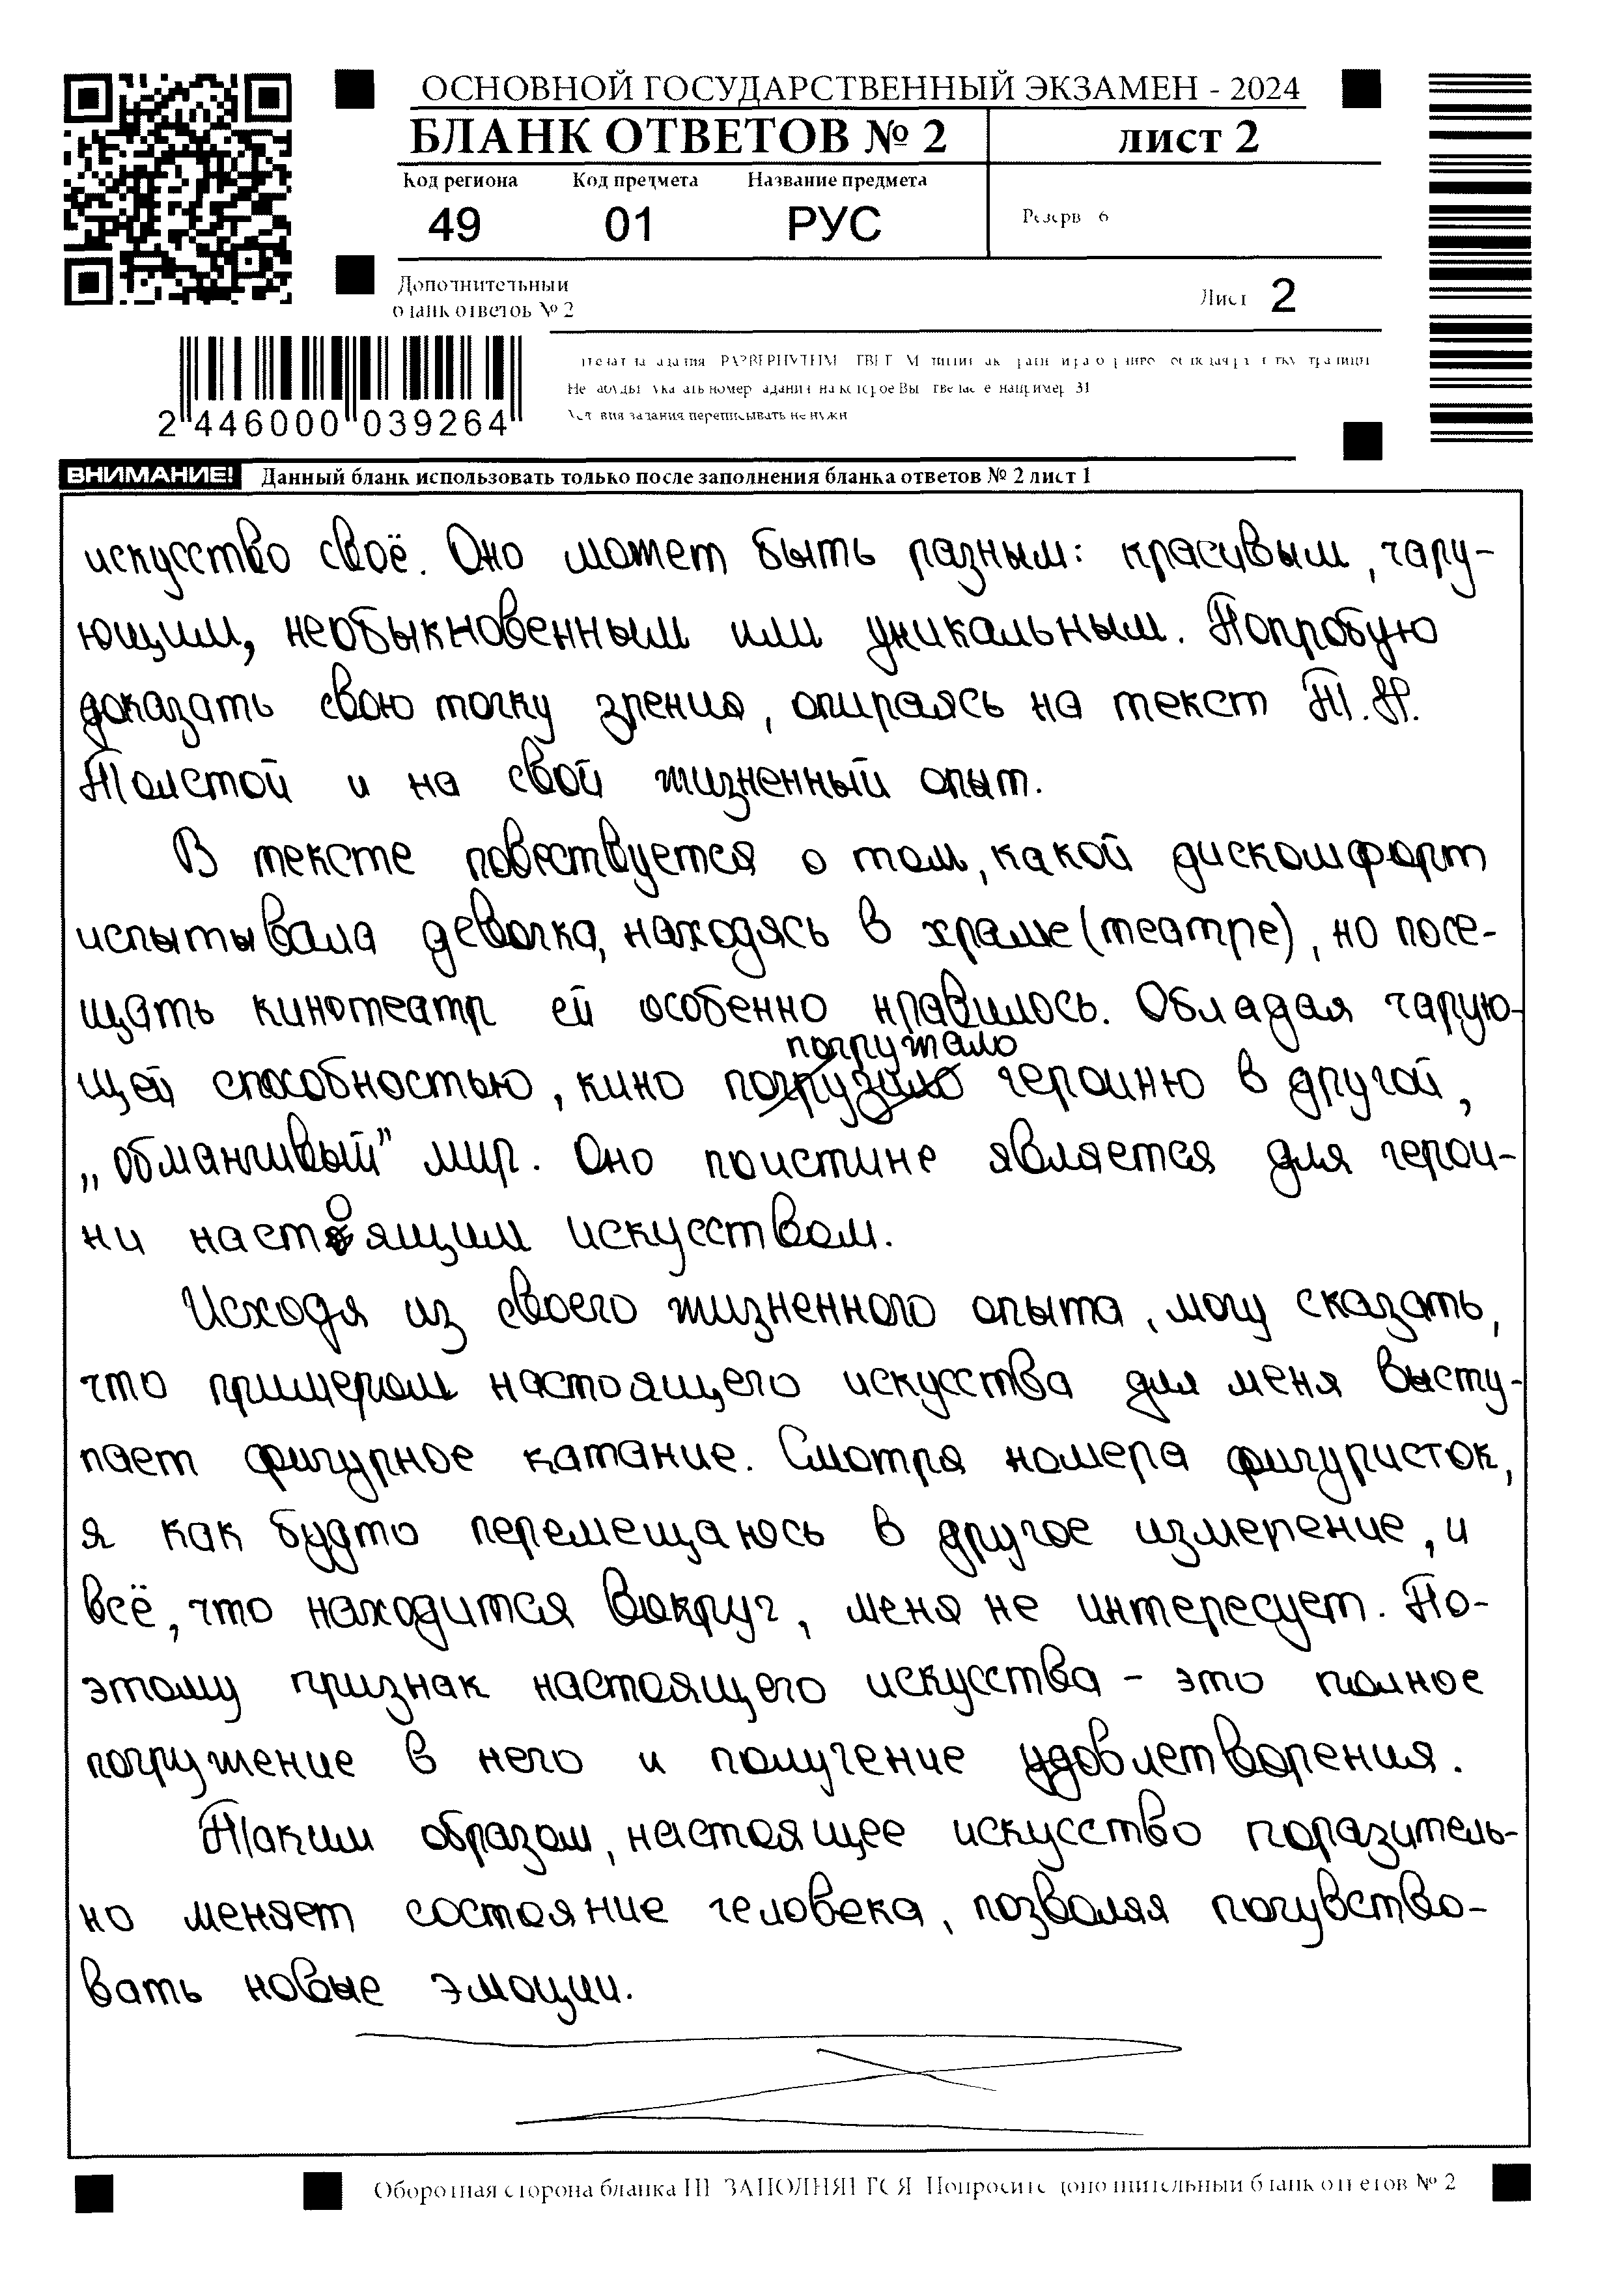 ОСНОВНОЙ ГОСУДАРСТВЕННЫЙ ЭКЗАМЕН - 2024
БЛАНК ОТВЕТОВ № 2
лист 2
Код региона Код предмета Название предмета
49 01 РУС
Резерв 6
Дополнительный
бланк ответов № 2
Лист 2
2 446000 039264
Условия задания переписывать не нужно
ВНИМАНИЕ! Данный бланк использовать только после заполнения бланка ответов № 2 лист 1
искусство своё. Оно может быть разным: красивым, чару-
ющим, необыкновенным или уникальным. Попробую
доказать свою точку зрения, опираясь на текст Т.Н.
Толстой и на свой жизненный опыт.
В тексте повествуется о том, какой дискомфорт
испытывала девочка, находясь в храме (театре), но посе-
щать кинотеатр ей особенно нравилось. Обладая чарую-
погружало
щей способностью, кино погрузило героиню в другой,
„обманчивый” мир. Оно поистине является для герои-
ни настоящим искусством.
Исходя из своего жизненного опыта, могу сказать,
что примером настоящего искусства для меня высту-
пает фигурное катание. Смотря номера фигуристок,
я как будто перемещаюсь в другое измерение, и
всё, что находится вокруг, меня не интересует. По-
этому признак настоящего искусства - это полное
погружение в него и получение удовлетворения.
Таким образом, настоящее искусство поразитель-
но меняет состояние человека, позволяя почувство-
вать новые эмоции.
Оборотная сторона бланка НЕ ЗАПОЛНЯЕТСЯ Попросите дополнительный бланк ответов № 2